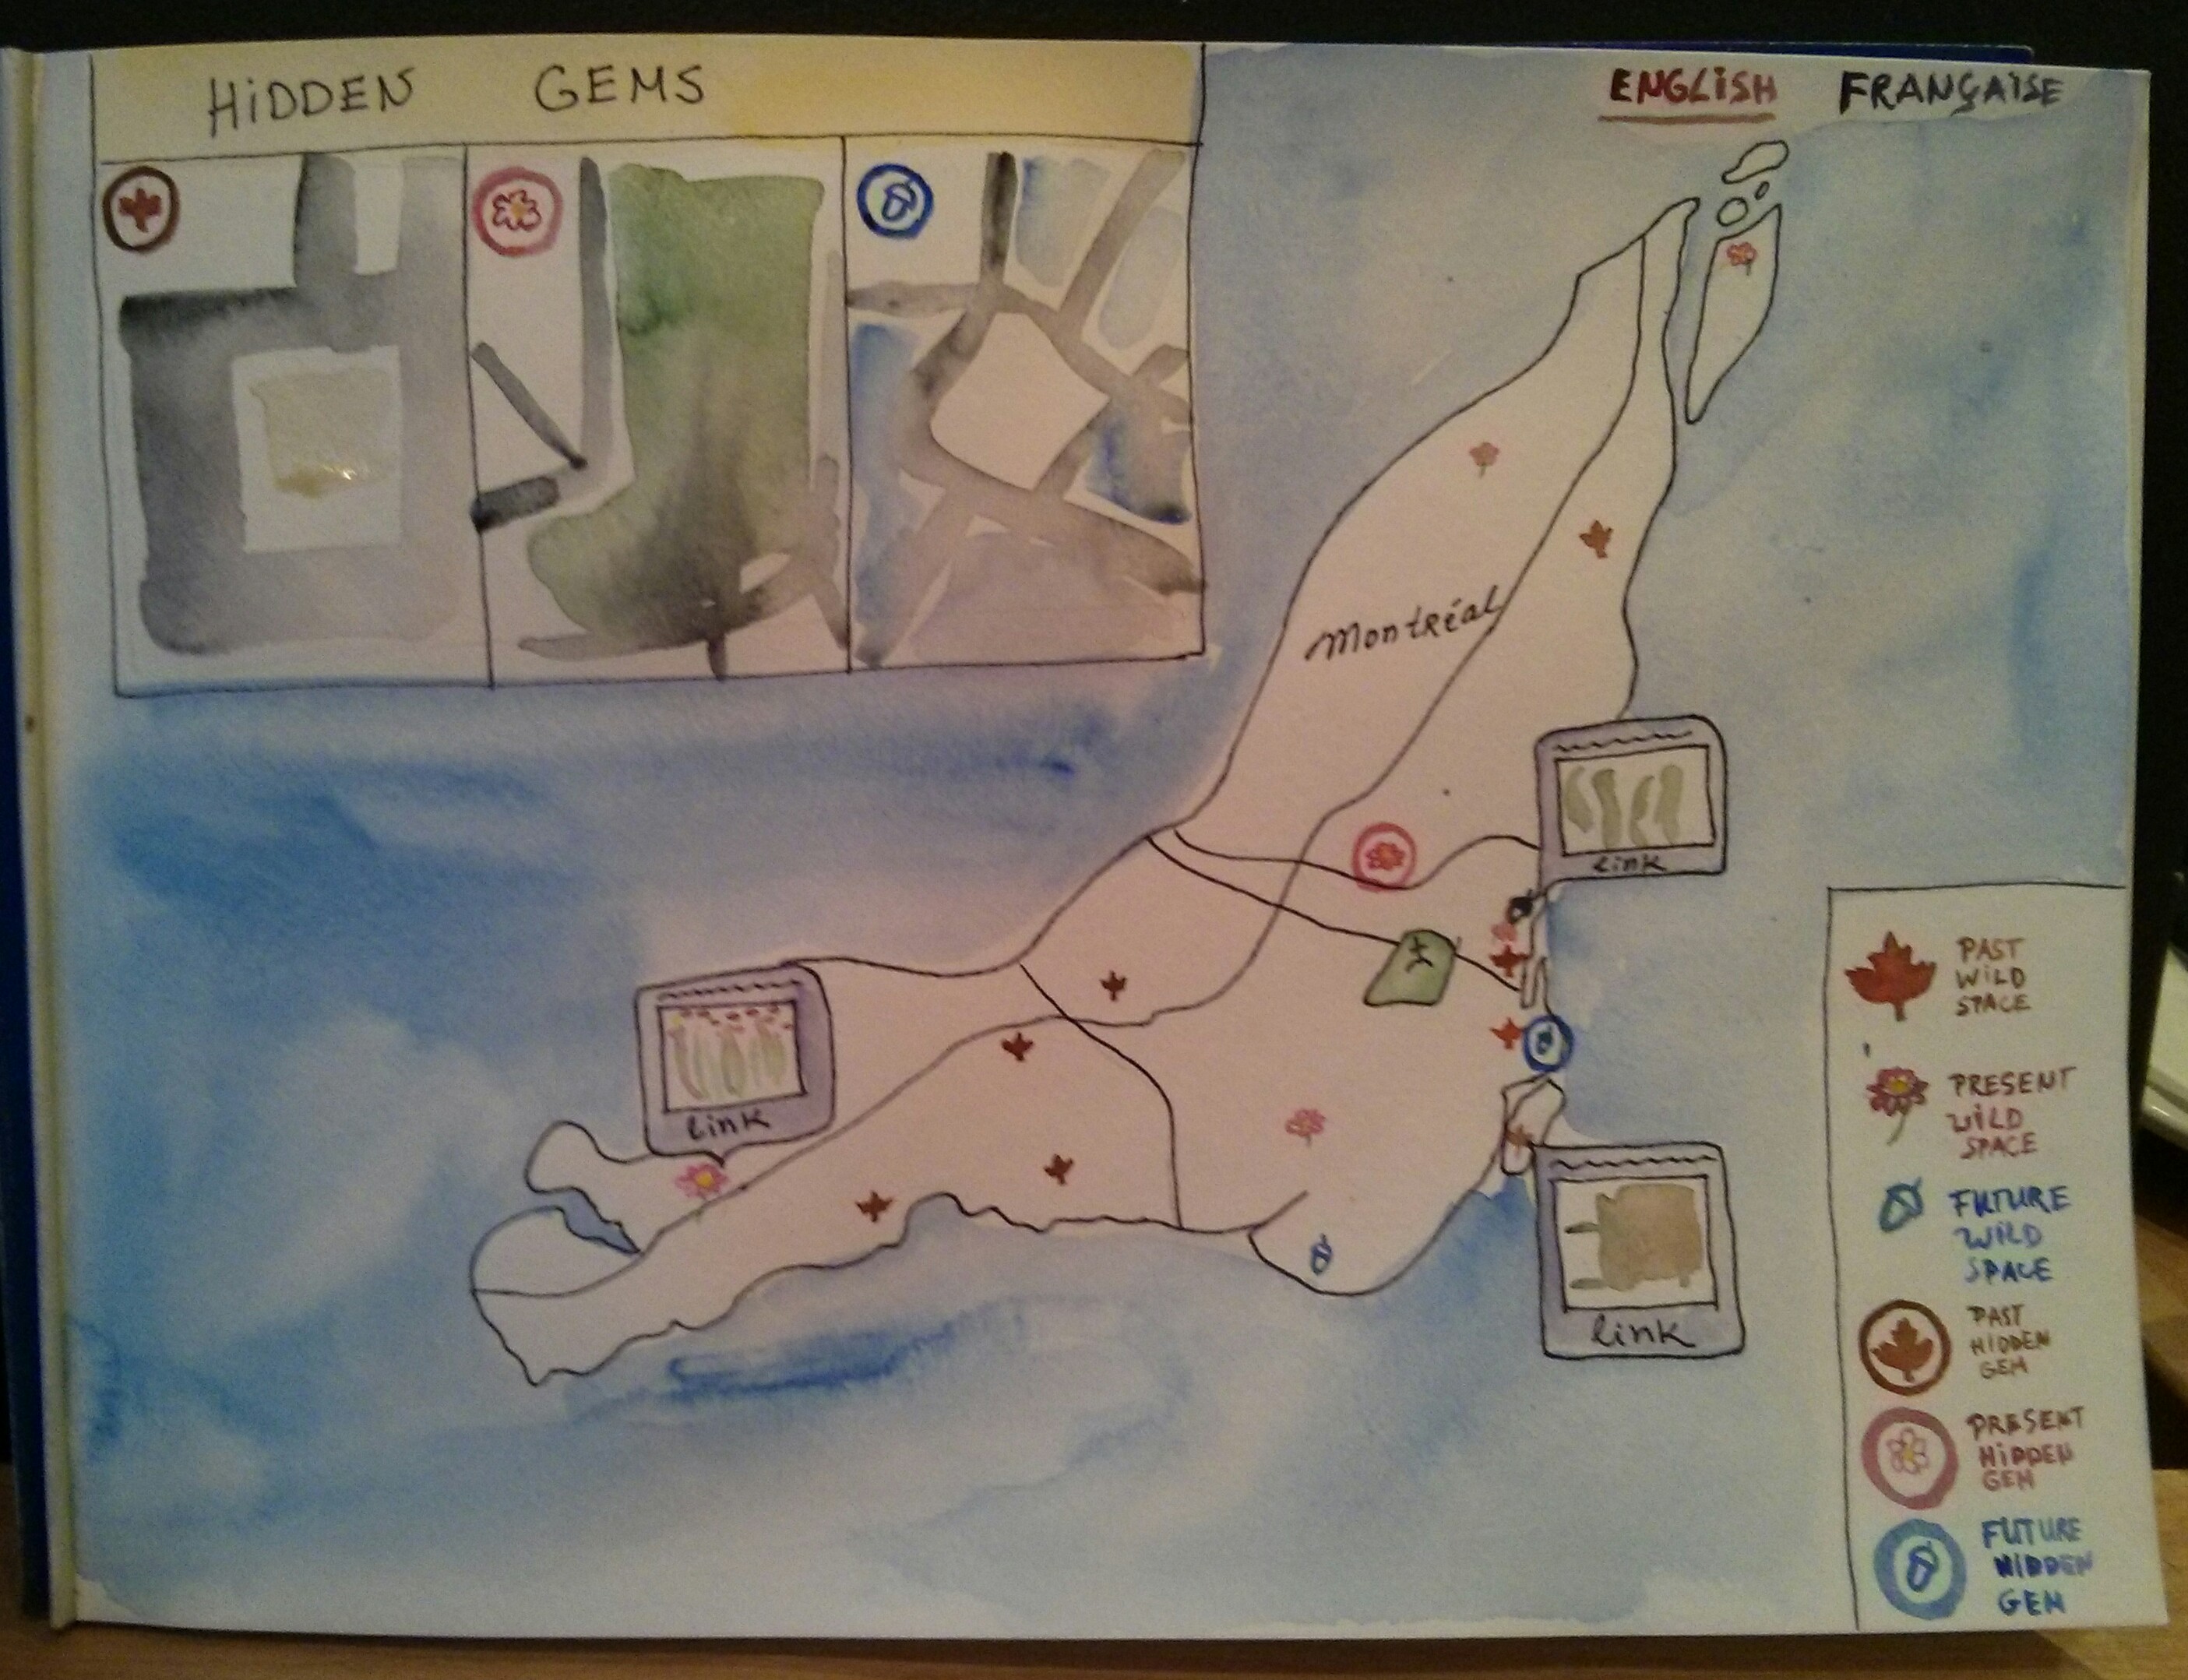 HiDDEN GEMS
ENGLiSH FRANÇAISE
Montréal
link
link
link
PAST
WiLD
SPACE
PRESENT
WiLD
SPACE
FUTURE
WiLD
SPACE
PAST
HIDDEN
GEM
PRESENT
HiDDEN
GEM
FUTURE
HIDDEN
GEM